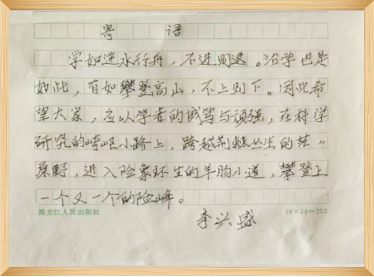 寄 语
学如逆水行舟，不进则退。治学也是
如此，有如攀登高山，不上则下。因此希
望大家，应以学者的诚笃与顽强，在科学
研究的崎岖小路上，跨越荆棘丛生的莽
原野，进入险象环生的羊肠小道，攀登上
一个又一个的险峰。
李兴盛
黑龙江人民出版社
18×14=252